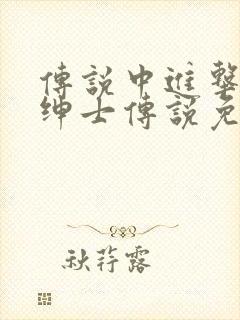 傳說中進擊
紳士傳說免
秋荇露